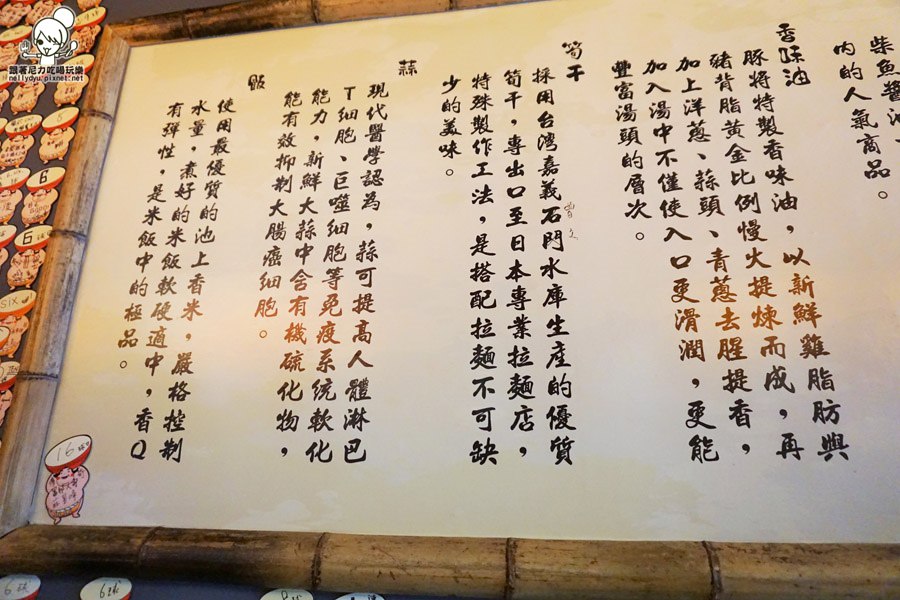 柴魚醬油、
內的人氣商品。
香味油
豚將特製香味油，以新鮮雞脂肪與
豬背脂黃金比例慢火提煉而成，再
加上洋蔥、蒜頭、青蔥去腥提香，
加入湯中不僅使入口更滑潤，更能
豐富湯頭的層次。
筍干
採用台灣嘉義石門水庫生產的優質
曾文
筍干，專出口至日本專業拉麵店，
特殊製作工法，是搭配拉麵不可缺
少的美味。
蒜
現代醫學認為，蒜可提高人體淋巴
T細胞、巨噬細胞等免疫系統軟化
能力，新鮮大蒜中含有機硫化物，
能有效抑制大腸癌細胞。
飯
使用最優質的池上香米，嚴格控制
水量，煮好的米飯軟硬適中，香Q
有彈性，是米飯中的極品。
跟著尼力吃喝玩樂
nellydyu.pixnet.net
6
6
SIX
16球
6球
6球